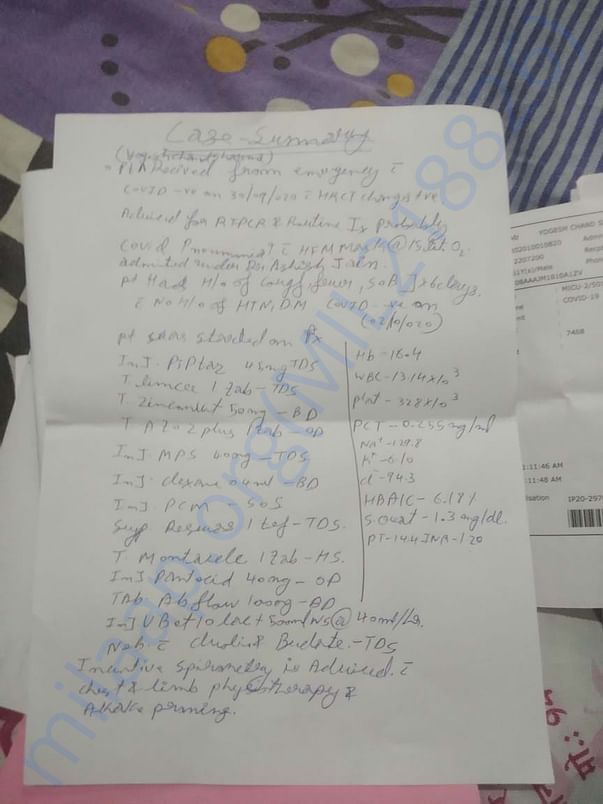 Case-Summary
(Yogesh chand sharma)
Pt Received from emergency c̄
COVID -ve on 30/09/020 c̄ HRCT changes +ve.
Adviced for RTPCR & Routine Ix probable
Covid Pneumonia? c̄ HFM Mask @ 15 Lit O2.
admitted under Dr. Ashish Jain.
pt Had H/o of Cough, fever, SOB ] x 6 days.
c̄ No H/o of HTN, DM COVID -ve on
(02/10/020)
pt was started on Rx
Inj. PiPtaz 4.5mg TDS
T. limcee 1 tab - TDS
T. Zinconut 50mg - BD
T. AZO2 plus 1 tab - OD
Inj. MPS 40mg - TDS
Inj. clexane 0.4ml - BD
Inj. PCM - SOS
Syp. 1 tsf - TDS.
T. Montair 1 tab - HS.
Inj Pantocid 40mg - OD
TAb Abflow 100mg - BD
Inj U Bet 10 lac + 500ml NS @ 40ml/hr.
Neb. c̄ duolin & Budate. - TDS
Incentive spirometry is Adviced. c̄
chest & limb physiotherapy &
Awake proning.
Hb - 16.4
WBC - 13.14 x 10³
Plat - 328 x 10³
PCT - 0.255 ng/ml
Na+ - 129.8
K+ - 6.10
cl- - 94.3
HBAIC - 6.18%
S. creat - 1.3 mg/dl.
PT - 14.4 INR - 1.20
YOGESH CHAND S
2010010820
2207200
08AAAJM1810A1ZV
MICU-2/505
COVID-19
7468
1:11:46 AM
1:11:48 AM
IP20-297
milaap.org